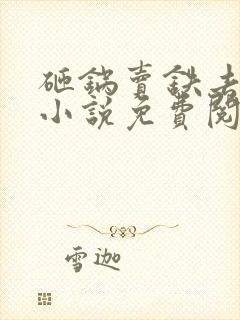 砸鍋賣鉄去
小説免費閱
雪迦